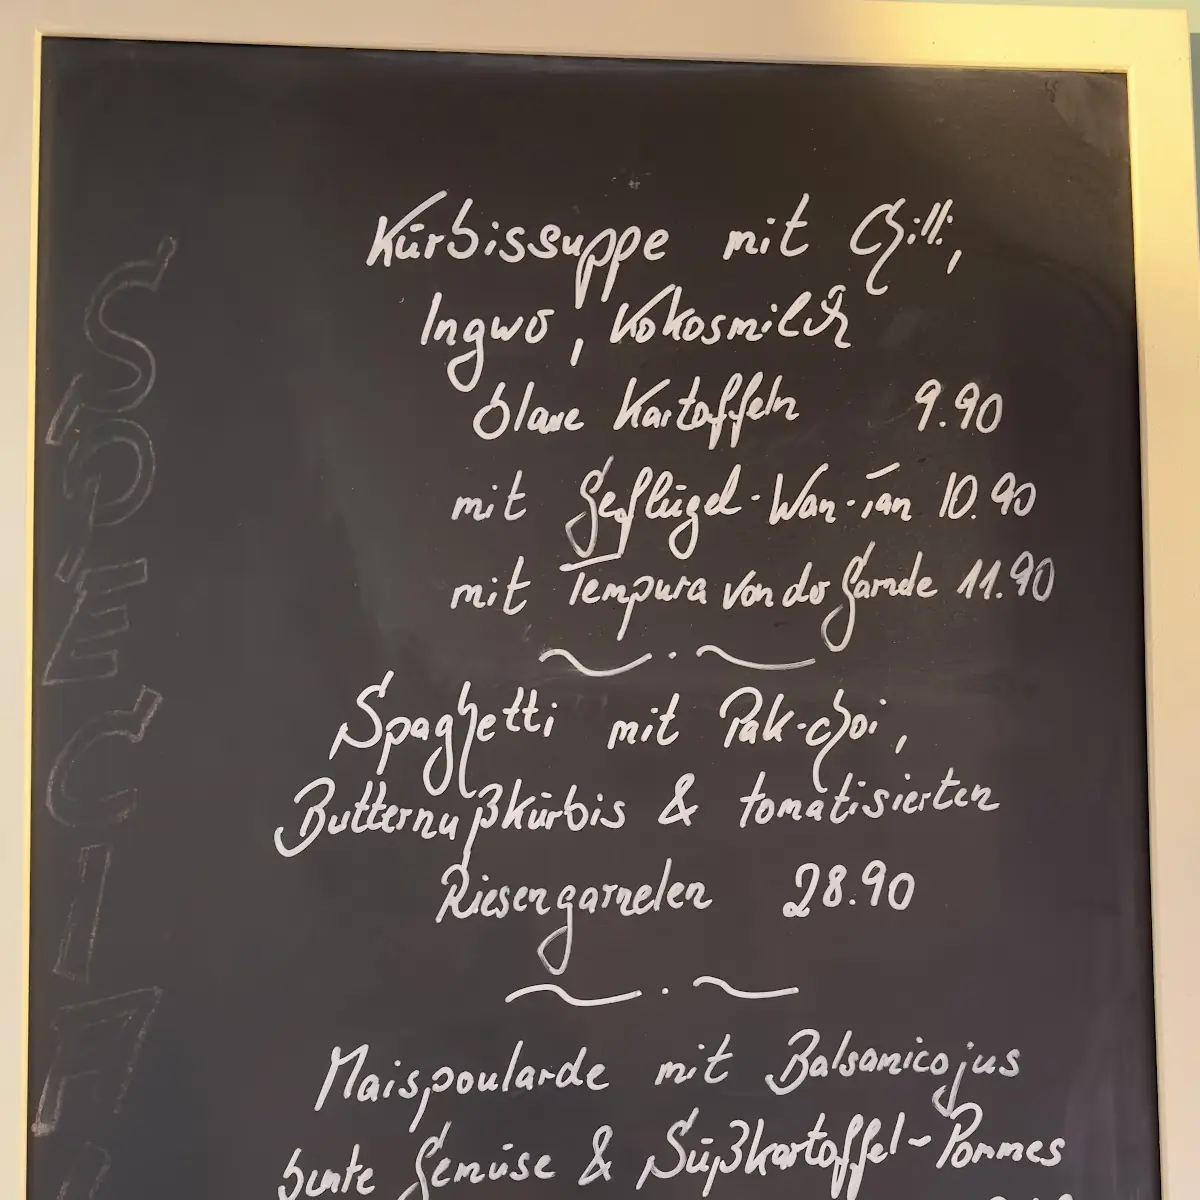 Kürbissuppe mit Chili,
Ingwer, Kokosmilch
blaue Kartoffeln 9.90
mit Geflügel-Wan-Tan 10.90
mit Tempura von der Garnele 11.90
Spaghetti mit Pak-choi,
Butternußkürbis & tomatisierten
Riesengarnelen 28.90
Maispoularde mit Balsamicojus
bunte Gemüse & Süßkartoffel-Pommes